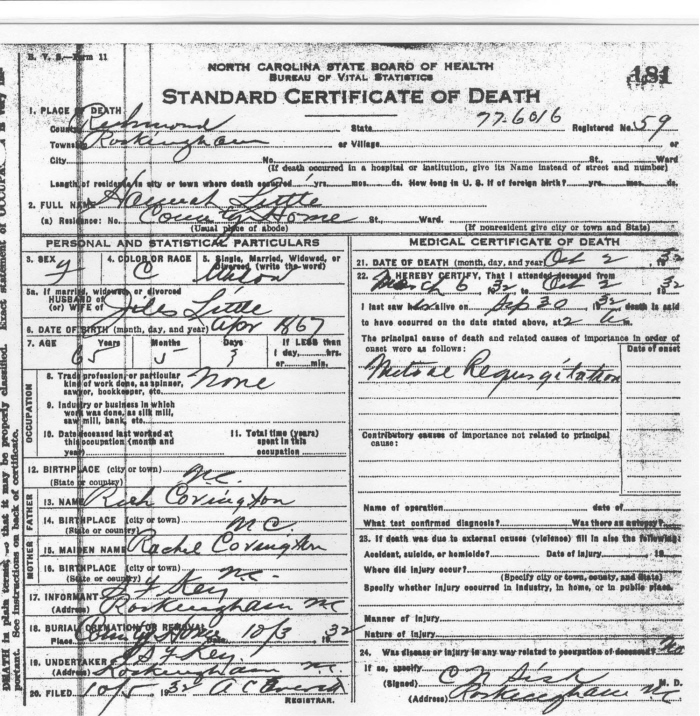 N. V. S.—Form 11
NORTH CAROLINA STATE BOARD OF HEALTH
BUREAU OF VITAL STATISTICS
STANDARD CERTIFICATE OF DEATH
181
77-6016
1. PLACE OF DEATH
County Richmond State Registered No. 59
Township Rockingham or Village or
City No. St., Ward
(If death occurred in a hospital or institution, give its Name instead of street and number)
Length of residence in city or town where death occurred yrs. mos. ds. How long in U. S. if of foreign birth? yrs. mos. ds.
2. FULL NAME Hannah Little
(a) Residence: No. County Home St., Ward.
(Usual place of abode) (If nonresident give city or town and State)
PERSONAL AND STATISTICAL PARTICULARS
3. SEX 4. COLOR OR RACE C 5. Single, Married, Widowed, or
Divorced (write the word)
5a. If married, widowed, or divorced
HUSBAND of
(or) WIFE of Jiles Little
6. DATE OF BIRTH (month, day, and year) Apr 1867
7. AGE Years Months Days If LESS than
65 5 1 day, hrs.
or min.
OCCUPATION
8. Trade, profession, or particular
kind of work done, as spinner,
sawyer, bookkeeper, etc. None
9. Industry or business in which
work was done, as silk mill,
saw mill, bank, etc.
10. Date deceased last worked at
this occupation (month and
year)
11. Total time (years)
spent in this
occupation
12. BIRTHPLACE (city or town)
(State or country) N.C.
FATHER
13. NAME Rich Covington
14. BIRTHPLACE (city or town)
(State or country) N C.
MOTHER
15. MAIDEN NAME Rachel Covington
16. BIRTHPLACE (city or town)
(State or country) N.C.
17. INFORMANT Key
(Address) Rockingham N C
18. BURIAL, CREMATION OR REMOVAL
Place County Home Date 10/3, 1932
19. UNDERTAKER Key
(Address) Rockingham N.
20. FILED 10/5 1932 A C
REGISTRAR.
MEDICAL CERTIFICATE OF DEATH
21. DATE OF DEATH (month, day, and year) Oct 2 1932
22. I HEREBY CERTIFY, That I attended deceased from
March 6, 1932 to Oct 2, 1932
I last saw alive on Sep 30, 1932 death is said
to have occurred on the date stated above, at 2 m.
The principal cause of death and related causes of importance in order of
onset were as follows: Date of onset
Mitral Regurgitation
Contributory causes of importance not related to principal
cause:
Name of operation date of
What test confirmed diagnosis? Was there an autopsy?
23. If death was due to external causes (violence) fill in also the following:
Accident, suicide, or homicide? Date of injury 19
Where did injury occur?
(Specify city or town, county, and State)
Specify whether injury occurred in industry, in home, or in public place.
Manner of injury
Nature of injury
24. Was disease or injury in any way related to occupation of deceased? No
If so, specify
(Signed) M. D.
(Address) Rockingham NC
DEATH in plain terms, so that it may be properly classified. Exact statement of
portant. See instructions on back of certificate.